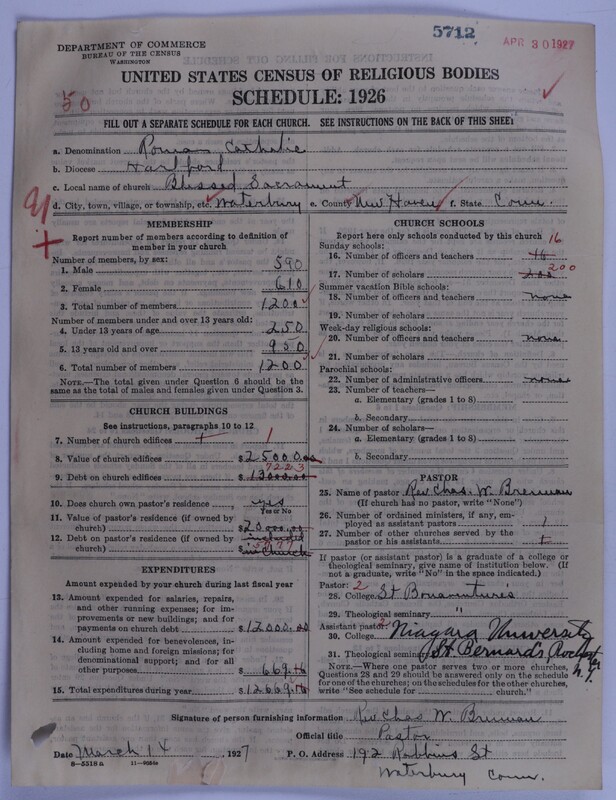 5712
APR 30 1927
DEPARTMENT OF COMMERCE
BUREAU OF THE CENSUS
WASHINGTON
UNITED STATES CENSUS OF RELIGIOUS BODIES
SCHEDULE: 1926
50
FILL OUT A SEPARATE SCHEDULE FOR EACH CHURCH. SEE INSTRUCTIONS ON THE BACK OF THIS SHEET
a. Denomination Roman Catholic
b. Diocese Hartford
c. Local name of church Blessed Sacrament
d. City, town, village, or township, etc. Waterbury e. County New Haven f. State Conn.
MEMBERSHIP
Report number of members according to definition of
member in your church
Number of members, by sex:
1. Male 590
2. Female 610
3. Total number of members 1200
Number of members under and over 13 years old:
4. Under 13 years of age 250
5. 13 years old and over 950
6. Total number of members 1200
NOTE.—The total given under Question 6 should be the
same as the total of males and females given under Question 3.
CHURCH BUILDINGS
See instructions, paragraphs 10 to 12
7. Number of church edifices 1
8. Value of church edifices $25000.00
7223
9. Debt on church edifices $13000.00
10. Does church own pastor's residence yes
Yes or No
11. Value of pastor's residence (if owned by
church) $20000.00
12. Debt on pastor's residence (if owned by
church) $ included
in Church
5777
EXPENDITURES
Amount expended by your church during last fiscal year
13. Amount expended for salaries, repairs,
and other running expenses; for im-
provements or new buildings; and for
payments on church debt $12000.00
14. Amount expended for benevolences, in-
cluding home and foreign missions; for
denominational support; and for all
other purposes $669.46
15. Total expenditures during year $12669.46
CHURCH SCHOOLS
Report here only schools conducted by this church
Sunday schools:
16
16. Number of officers and teachers 16
200
17. Number of scholars 200
Summer vacation Bible schools:
18. Number of officers and teachers none
19. Number of scholars
Week-day religious schools:
20. Number of officers and teachers none
21. Number of scholars
Parochial schools:
22. Number of administrative officers none
23. Number of teachers—
a. Elementary (grades 1 to 8)
b. Secondary
24. Number of scholars—
a. Elementary (grades 1 to 8)
b. Secondary
PASTOR
25. Name of pastor Rev Chas. W. Brennan
(If church has no pastor, write "None")
26. Number of ordained ministers, if any, em-
ployed as assistant pastors 1
27. Number of other churches served by the
pastor or his assistants
If pastor (or assistant pastor) is a graduate of a college or
theological seminary, give name of institution below. (If
not a graduate, write "No" in the space indicated.)
Pastor: 2
28. College St Bonaventures
29. Theological seminary "
Assistant pastor: 2
30. College Niagara University
31. Theological seminary St Bernard's Rochester
N.Y.
NOTE.—Where one pastor serves two or more churches,
Questions 28 and 29 should be answered only on the schedule
for one of the churches; on the schedules for the other churches,
write "See schedule for church."
Signature of person furnishing information Rev Chas W. Brennan
Official title Pastor
Date March 14 1927 P. O. Address 192 Robbins St
8-5518a 11-9524a
Waterbury Conn.